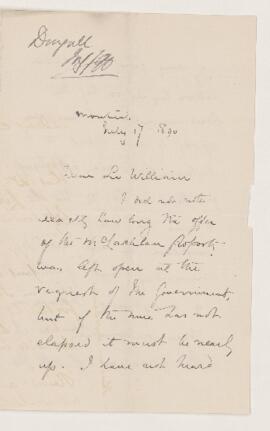 Dougall
July/90
Montreal.
July 17 1890
Dear Sir William
I did not note
exactly how long the offer
of the McLachlan property
was left open at the
request of the Government,
but if the time has not
elapsed it must be nearly
up. I have not heard